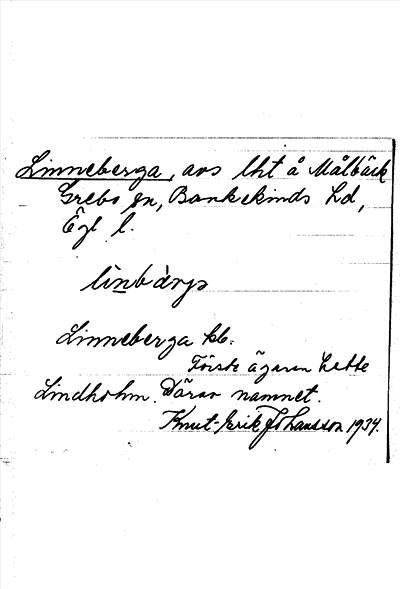 Linneberga, avs lht å Målbäck
Grebo sn, Bankekinds hd,
Ögl l.
linbärja
Linneberga kb.
Förste ägaren hette
Lindholm. Därav namnet.
Knut-Erik Johansson 1934.